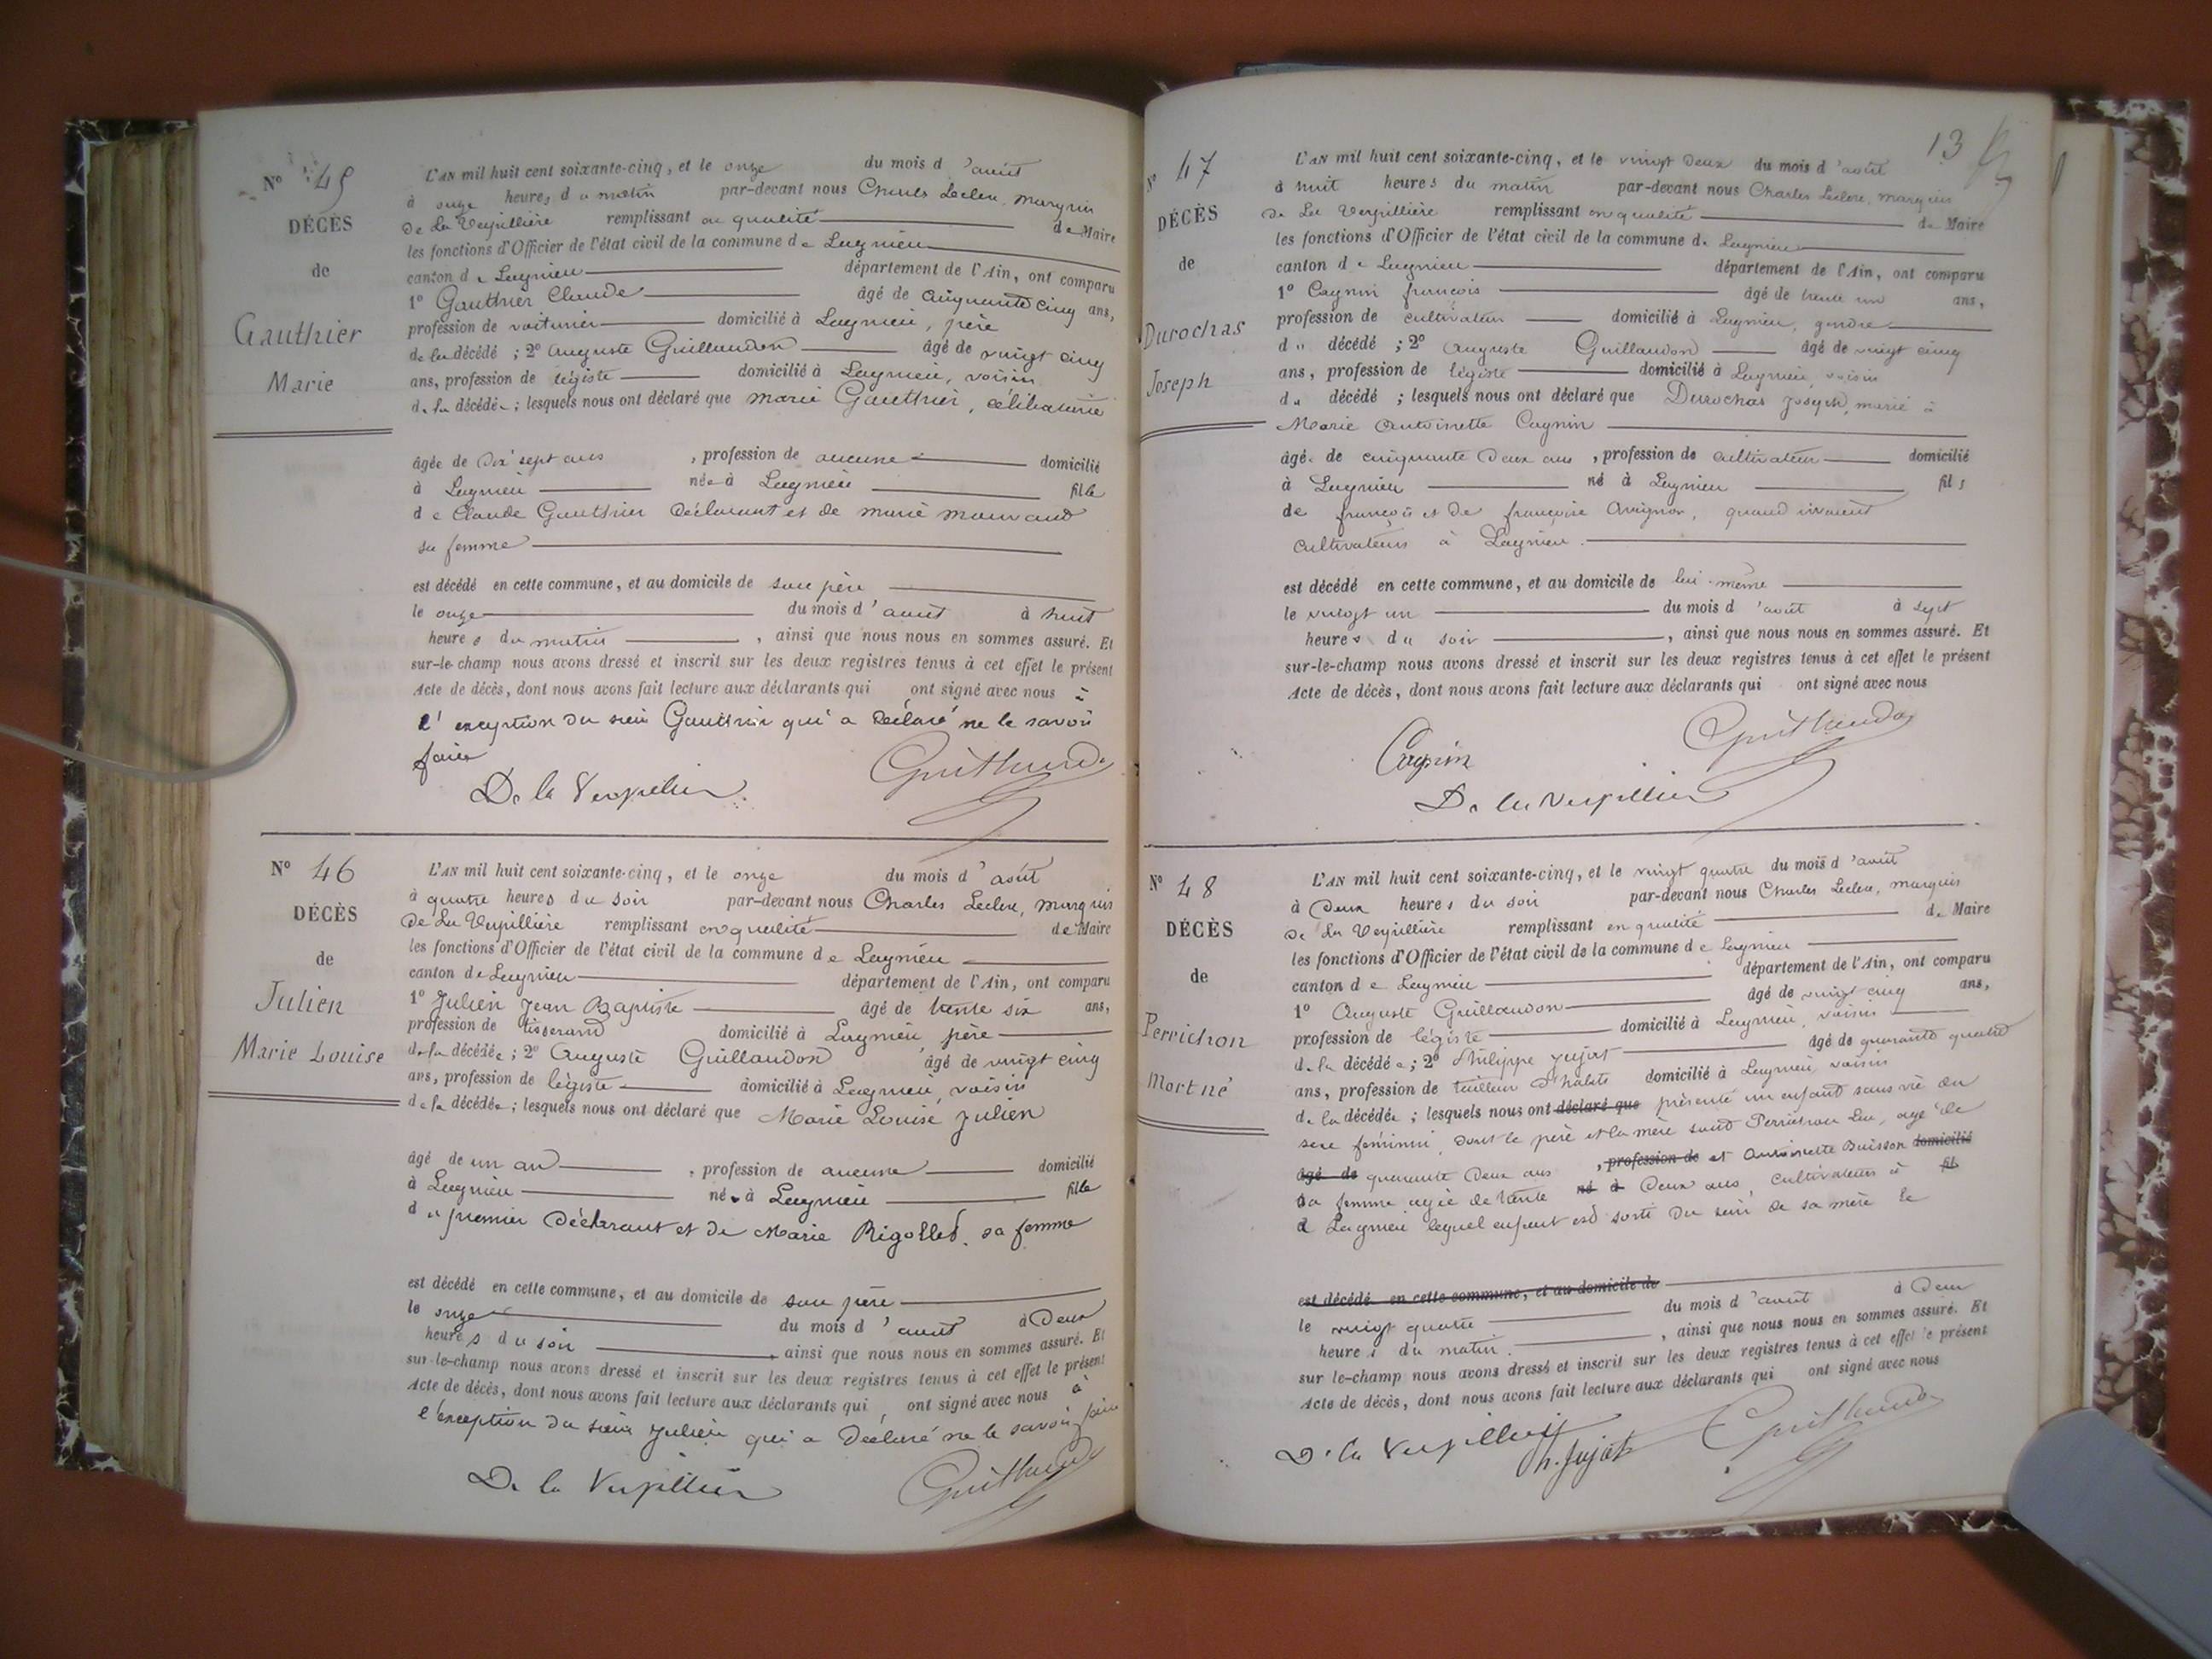 N° 45
DÉCÈS
de
Gauthier
Marie
L'AN mil huit cent soixante-cinq, et le onze du mois d'août
à onze heures du matin par-devant nous Charles Leclerc, marquis
De La Verpillière remplissant en qualité de Maire
les fonctions d'Officier de l'état civil de la commune de Lagnieu
canton de Lagnieu département de l'Ain, ont comparu
1° Gauthier Claude âgé de cinquante cinq ans,
profession de voiturier domicilié à Lagnieu, père
de la décédé ; 2° Auguste Guillaudon âgé de vingt cinq
ans, profession de légiste domicilié à Lagnieu, voisin
de la décédée ; lesquels nous ont déclaré que marie Gauthier, célibataire
âgée de Dix sept ans , profession de aucune domicilié
à Lagnieu née à Lagnieu fille
de Claude Gauthier Déclarant et de marie
sa femme
est décédé en cette commune, et au domicile de son père
le onze du mois d'août à huit
heures du matin , ainsi que nous nous en sommes assuré. Et
sur-le-champ nous avons dressé et inscrit sur les deux registres tenus à cet effet le présent
Acte de décès, dont nous avons fait lecture aux déclarants qui ont signé avec nous à
l'exception du sieur Gauthier qui a Déclaré ne le savoir
faire
De la Verpillière Guillaudon
N° 46
DÉCÈS
de
Julien
Marie Louise
L'AN mil huit cent soixante-cinq, et le onze du mois d'août
à quatre heures du soir par-devant nous Charles Leclerc, marquis
De La Verpillière remplissant en qualité de Maire
les fonctions d'Officier de l'état civil de la commune de Lagnieu
canton de Lagnieu département de l'Ain, ont comparu
1° Julien Jean Baptiste âgé de trente six ans,
profession de tisserand domicilié à Lagnieu, père
de la décédée ; 2° Auguste Guillaudon âgé de vingt cinq
ans, profession de légiste domicilié à Lagnieu, voisin
de la décédée ; lesquels nous ont déclaré que Marie Louise Julien
âgé de un an , profession de aucune domicilié
à Lagnieu née à Lagnieu fille
du premier Déclarant et de Marie Rigollet, sa femme
est décédé en cette commune, et au domicile de son père
le onze du mois d'août à Deux
heures du soir , ainsi que nous nous en sommes assuré. Et
sur-le-champ nous avons dressé et inscrit sur les deux registres tenus à cet effet le présent
Acte de décès, dont nous avons fait lecture aux déclarants qui ont signé avec nous à
l'exception du sieur Julien qui a Déclaré ne le savoir faire
De la Verpillière Guillaudon
13
N° 47
DÉCÈS
de
Durochas
Joseph
L'AN mil huit cent soixante-cinq, et le vingt Deux du mois d'août
à huit heures du matin par-devant nous Charles Leclerc, marquis
De La Verpillière remplissant en qualité de Maire
les fonctions d'Officier de l'état civil de la commune de Lagnieu
canton de Lagnieu département de l'Ain, ont comparu
1° Cagnin françois âgé de trente un ans,
profession de cultivateur domicilié à Lagnieu, gendre
du décédé ; 2° Auguste Guillaudon âgé de vingt cinq
ans, profession de légiste domicilié à Lagnieu, voisin
du décédé ; lesquels nous ont déclaré que Durochas Joseph, marié à
Marie Antoinette Cagnin
âgé de cinquante Deux ans , profession de cultivateur domicilié
à Lagnieu né à Lagnieu fils
de françois et de françoise Avignon, quand vivaient
cultivateurs à Lagnieu.
est décédé en cette commune, et au domicile de lui-même
le vingt un du mois d'août à sept
heures du soir , ainsi que nous nous en sommes assuré. Et
sur-le-champ nous avons dressé et inscrit sur les deux registres tenus à cet effet le présent
Acte de décès, dont nous avons fait lecture aux déclarants qui ont signé avec nous
Cagnin Guillaudon
De la Verpillière
N° 48
DÉCÈS
de
Perrichon
Mort né
L'AN mil huit cent soixante-cinq, et le vingt quatre du mois d'août
à Deux heures du soir par-devant nous Charles Leclerc, marquis
De La Verpillière remplissant en qualité de Maire
les fonctions d'Officier de l'état civil de la commune de Lagnieu
canton de Lagnieu département de l'Ain, ont comparu
1° Auguste Guillaudon âgé de vingt cinq ans,
profession de légiste domicilié à Lagnieu, voisin
de la décédée ; 2° Philippe Jujat âgé de quarante quatre
ans, profession de tailleur d'habits domicilié à Lagnieu, voisin
de la décédée ; lesquels nous ont déclaré que présenté un enfant sans vie du
sexe féminin, dont le père et la mère sont Perrichon, agé de
âgé de quarante Deux ans , profession de et Antoinette Buisson domicilié
sa femme agée de trente né à Deux ans, cultivateurs à fil
d Lagnieu lequel enfant est sorti du sein de sa mère le
est décédé en cette commune, et au domicile de
le vingt quatre du mois d'août à Deux
heures du matin. , ainsi que nous nous en sommes assuré. Et
sur le-champ nous avons dressé et inscrit sur les deux registres tenus à cet effet le présent
Acte de décès, dont nous avons fait lecture aux déclarants qui ont signé avec nous
De la Verpillière Ph. Jujat Guillaudon